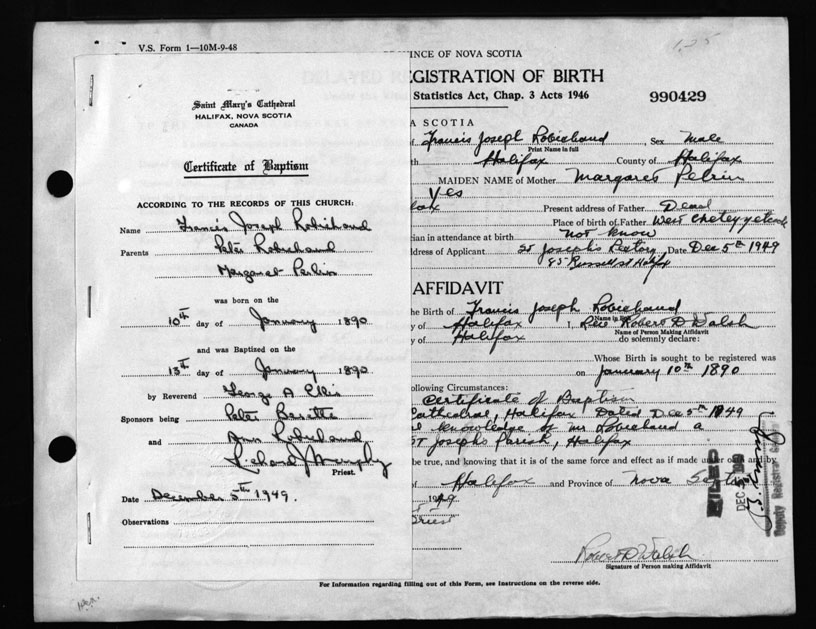 V.S. Form 1—10M-9-48
Saint Mary's Cathedral
HALIFAX, NOVA SCOTIA
CANADA
Certificate of Baptism
ACCORDING TO THE RECORDS OF THIS CHURCH:
Name Francis Joseph Robichaud
Parents Peter Robichaud
Margaret
was born on the
10th day of January 1890
and was Baptized on the
13th day of January 1890
by Reverend George A Ellis
Sponsors being Peter
and Ann Robichaud
Murphy
Priest.
Date December 5th 1949.
Observations
INCE OF NOVA SCOTIA
REGISTRATION OF BIRTH
Statistics Act, Chap. 3 Acts 1946
990429
A SCOTIA
Francis Joseph Robichaud, Sex Male
Print Name in full
Halifax County of Halifax
MAIDEN NAME of Mother Margaret Pelrin
Yes
Present address of Father Dead
Place of birth of Father West
cian in attendance at birth not know
ddress of Applicant St Joseph's Rectory, Date Dec 5th 1949
85 Russell st Halifax
AFFIDAVIT
he Birth of Francis Joseph Robichaud
Name in full
y of Halifax I, Rev Robert D Walsh
Name of Person Making Affidavit
y of Halifax do solemnly declare:
Whose Birth is sought to be registered was
on January 10th 1890
ollowing Circumstances:
Certificate of Baptism
Cathedral, Halifax Dated Dec 5th 1949
knowledge of Mr Robichaud a
St Josephs Parish, Halifax
be true, and knowing that it is of the same force and effect as if made under oath and by
Halifax and Province of Nova Scotia
1949
Priest
FILED
DEC
Deputy Registrar General
Robert D Walsh
Signature of Person making Affidavit
For Information regarding filling out of this Form, see Instructions on the reverse side.